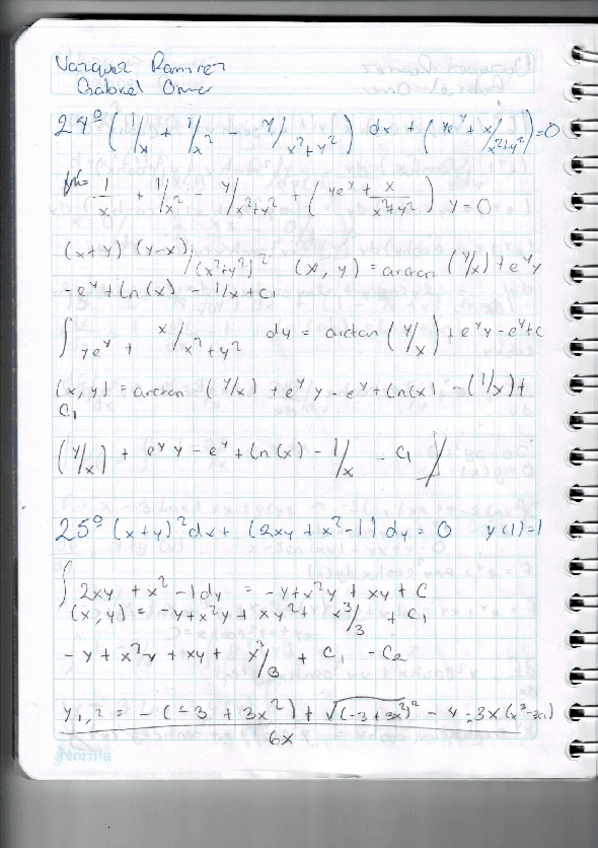 Vazquez Ramirez
Gabriel Omar
24º (1/x + 1/x² - y/x²+y²) dx + (ye^y + x/x²+y²)=0
1/x + 1/x² - y/x²+y² + (ye^y + x/x²+y²) y = 0
(x+y) (y-x)/(x²+y²)² (x, y) = arctan (y/x) + e^y y
- e^y + ln(x) - 1/x + c₁
∫ ye^y + x/x²+y² dy = arctan (y/x) + e^y y - e^y + c
(x, y) = arctan (y/x) + e^y y - e^y + ln(x) - (1/x) +
C₁
(y/x) + e^y y - e^y + ln(x) - 1/x - c₁
25º (x+y)² dx + (2xy + x² - 1) dy = 0 y(1)=1
∫ 2xy + x² - 1 dy = -y + x²y + xy + C
(x, y) = -y + x²y + xy² + x³/3 + C₁
- y + x²y + xy + x³/3 + C₁ - C₂
y₁,₂ = -(-3 + 3x²) + √(-3+3x²)² - 4·3x(x³-3c₁)
6x
Norma